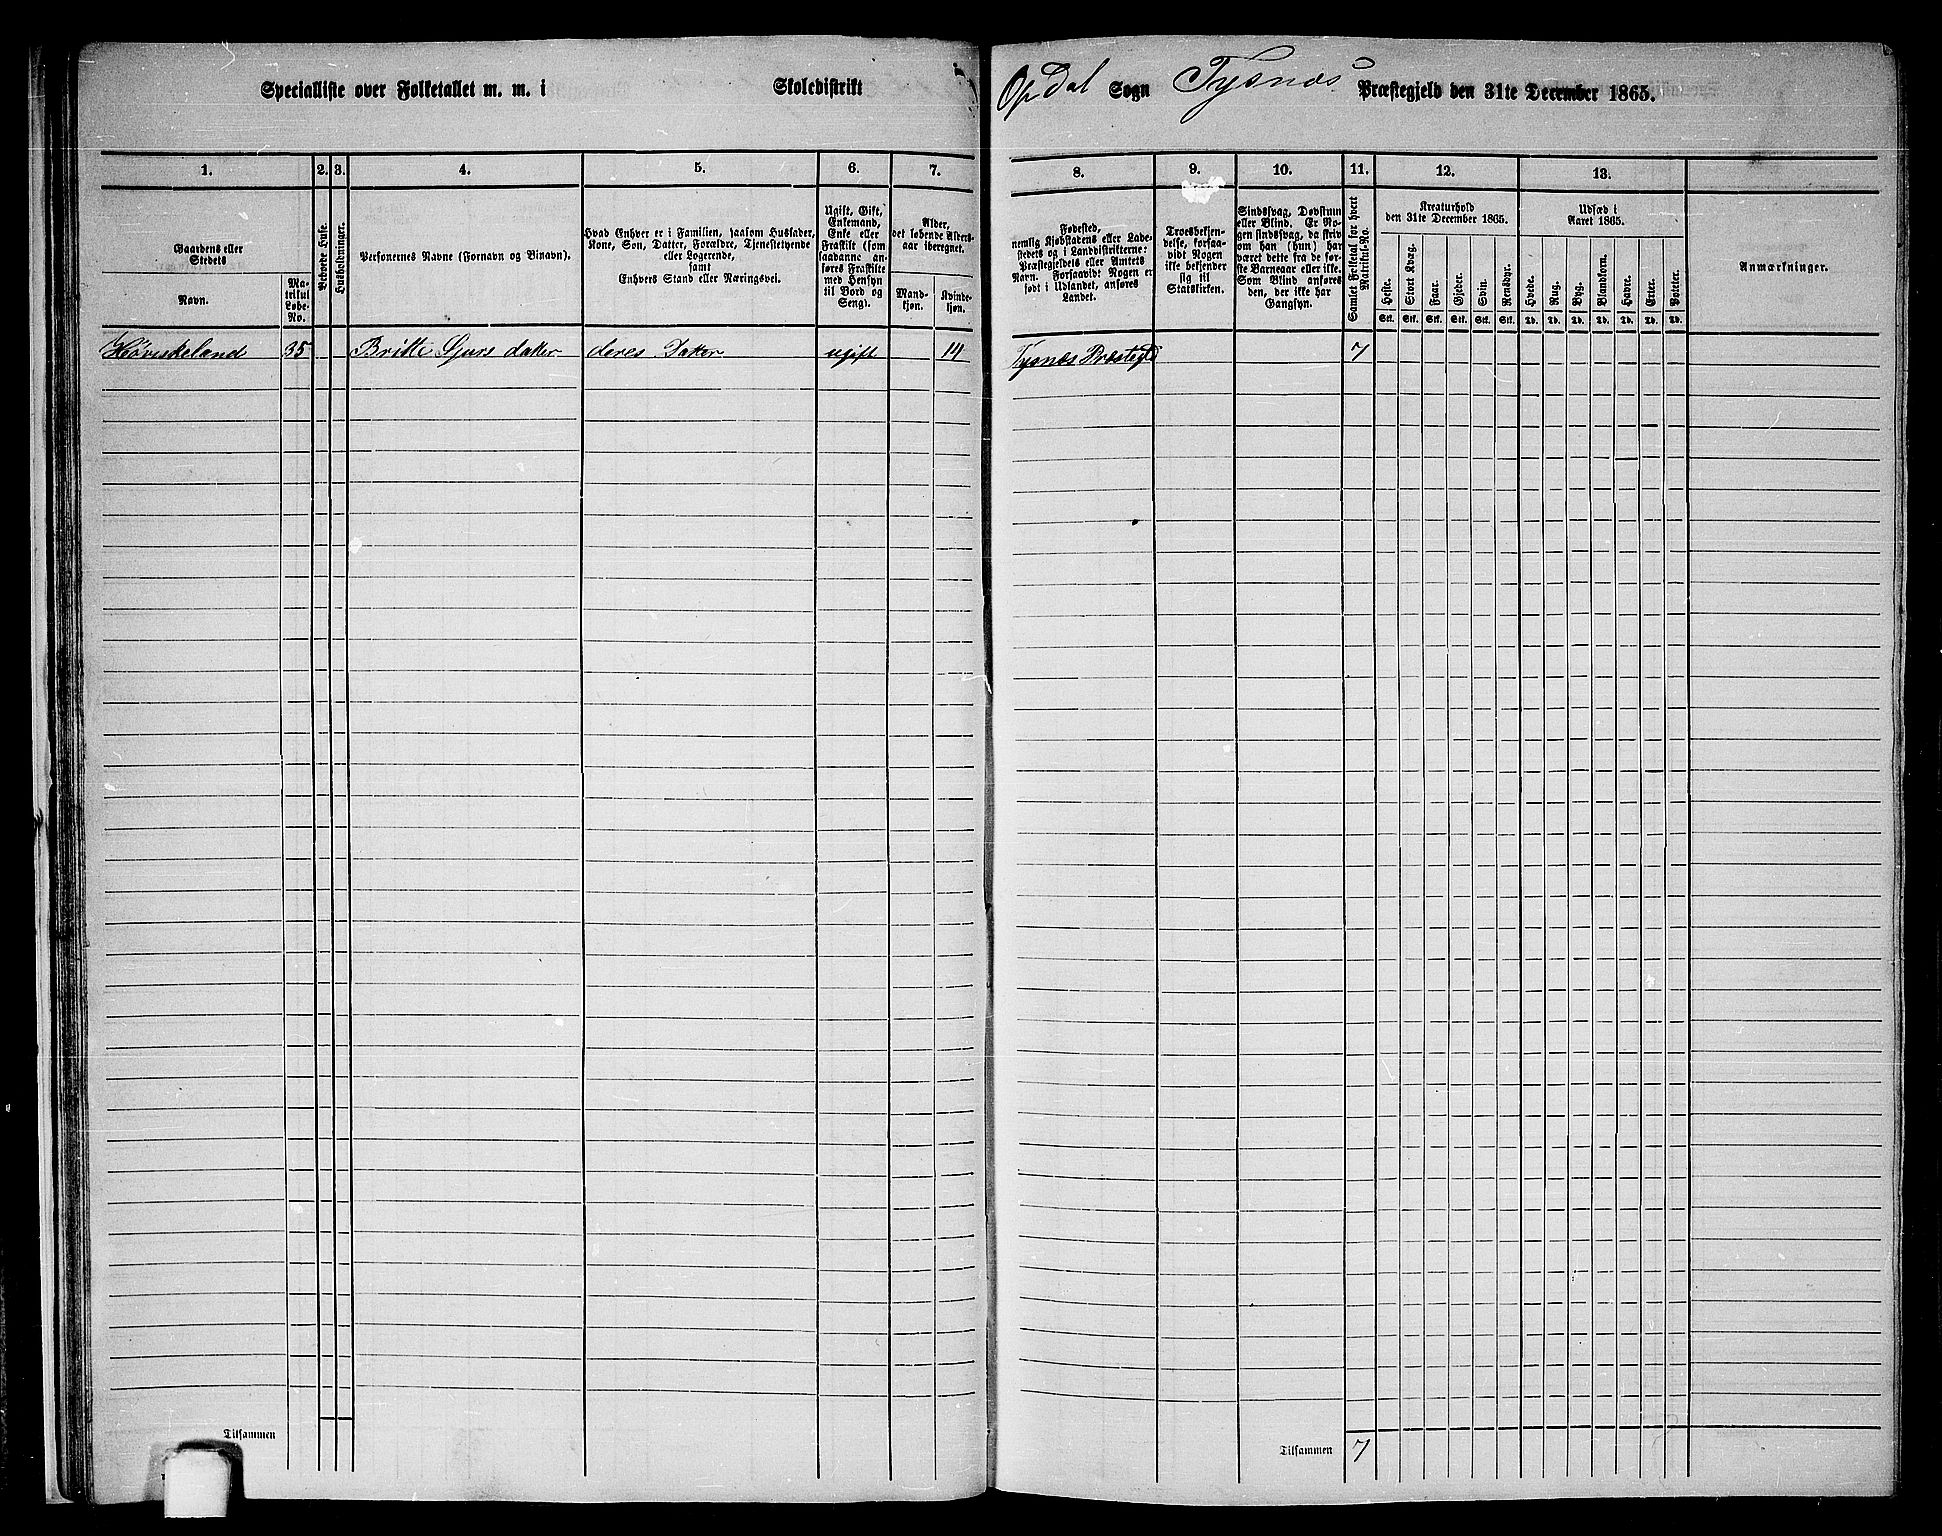 Specialliste over Folketallet m. m. i Skoledistrikt Opdal Sogn Tysnæs Præstegjeld den 31te December 1865.
1. 2. 3. 4. 5. 6. 7. 8. 9. 10. 11. 12. 13.
Gaardens eller
Stedets
Navn.
Ma-
trikul
Løbe-
No.
Beboede Huse.
Husholdninger.
Personernes Navne (Fornavn og Binavn).
Hvad Enhver er i Familien, saasom Husfader,
Kone, Søn, Datter, Forældre, Tjenestetyende
eller Logerende,
samt
Enhvers Stand eller Næringsvei.
Ugift, Gift,
Enkemand,
Enke eller
Fraskilt (som
saadanne an-
føres Fraskilte
med Hensyn
til Bord og
Seng).
Alder,
det løbende Alders-
aar iberegnet.
Mand-
kjøn.
Kvinde-
kjøn.
Fødested,
nemlig Kjøbstadens eller Lade-
stedets og i Landdistrikterne:
Præstegjeldets eller Amtets
Navn. Forsaavidt Nogen er
født i Udlandet, anføres
Landet.
Troesbekjen-
delse, forsaa-
vidt Nogen
ikke bekjender
sig til
Statskirken.
Sindssvag, Døvstum
eller Blind. Er No-
gen sindssvag, da skriv
om han (hun) har
været dette fra de før-
ste Barneaar eller ikke.
Som Blind anføres
den, der ikke har
Gangsyn.
Samlet Folketal for hvert
Matrikul-No.
Kreaturhold
den 31te December 1865.
Heste. Stort Kvæg. Faar. Gjeder. Svin. Rensdyr.
Stk. Stk. Stk. Stk. Stk. Stk.
Udsæd i
Aaret 1865.
Hvede. Rug. Byg. Blandkorn. Havre. Erter. Poteter.
Td. Td. Td. Td. Td. Td. Td.
Anmærkninger.
Høviskeland 35 Britte Sjurs datter deres Datter ugift 14 Tysnæs Præstegld 7
Tilsammen Tilsammen 7